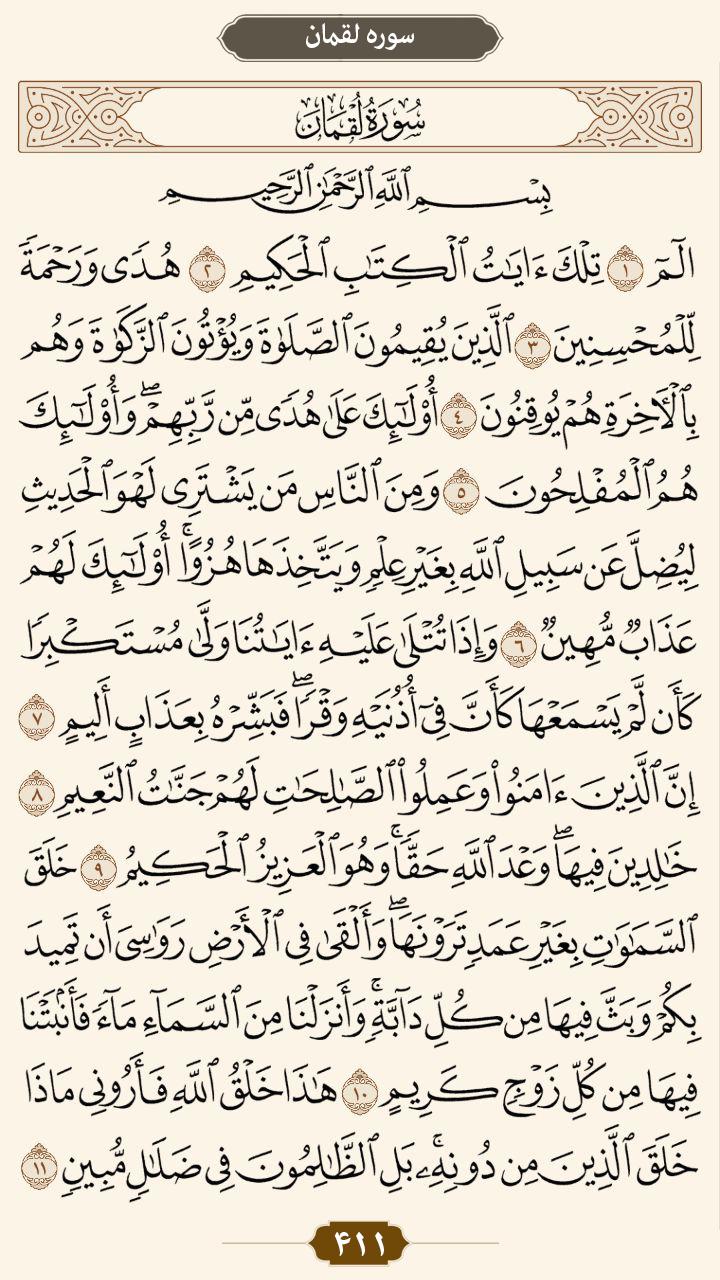 سوره لقمان
سُورَةُ لُقۡمَانَ
بِسۡمِ ٱللَّهِ ٱلرَّحۡمَٰنِ ٱلرَّحِيمِ
الٓمٓ ١ تِلۡكَ ءَايَٰتُ ٱلۡكِتَٰبِ ٱلۡحَكِيمِ ٢ هُدٗى وَرَحۡمَةٗ
لِّلۡمُحۡسِنِينَ ٣ ٱلَّذِينَ يُقِيمُونَ ٱلصَّلَوٰةَ وَيُؤۡتُونَ ٱلزَّكَوٰةَ وَهُم
بِٱلۡأٓخِرَةِ هُمۡ يُوقِنُونَ ٤ أُوْلَٰٓئِكَ عَلَىٰ هُدٗى مِّن رَّبِّهِمۡۖ وَأُوْلَٰٓئِكَ
هُمُ ٱلۡمُفۡلِحُونَ ٥ وَمِنَ ٱلنَّاسِ مَن يَشۡتَرِي لَهۡوَ ٱلۡحَدِيثِ
لِيُضِلَّ عَن سَبِيلِ ٱللَّهِ بِغَيۡرِ عِلۡمٖ وَيَتَّخِذَهَا هُزُوًاۚ أُوْلَٰٓئِكَ لَهُمۡ
عَذَابٞ مُّهِينٞ ٦ وَإِذَا تُتۡلَىٰ عَلَيۡهِ ءَايَٰتُنَا وَلَّىٰ مُسۡتَكۡبِرٗا
كَأَن لَّمۡ يَسۡمَعۡهَا كَأَنَّ فِيٓ أُذُنَيۡهِ وَقۡرٗاۖ فَبَشِّرۡهُ بِعَذَابٍ أَلِيمٍ ٧
إِنَّ ٱلَّذِينَ ءَامَنُواْ وَعَمِلُواْ ٱلصَّٰلِحَٰتِ لَهُمۡ جَنَّٰتُ ٱلنَّعِيمِ ٨
خَٰلِدِينَ فِيهَاۖ وَعۡدَ ٱللَّهِ حَقّٗاۚ وَهُوَ ٱلۡعَزِيزُ ٱلۡحَكِيمُ ٩ خَلَقَ
ٱلسَّمَٰوَٰتِ بِغَيۡرِ عَمَدٖ تَرَوۡنَهَاۖ وَأَلۡقَىٰ فِي ٱلۡأَرۡضِ رَوَٰسِيَ أَن تَمِيدَ
بِكُمۡ وَبَثَّ فِيهَا مِن كُلِّ دَآبَّةٖۚ وَأَنزَلۡنَا مِنَ ٱلسَّمَآءِ مَآءٗ فَأَنۢبَتۡنَا
فِيهَا مِن كُلِّ زَوۡجٖ كَرِيمٍ ١٠ هَٰذَا خَلۡقُ ٱللَّهِ فَأَرُونِي مَاذَا
خَلَقَ ٱلَّذِينَ مِن دُونِهِۦۚ بَلِ ٱلظَّٰلِمُونَ فِي ضَلَٰلٖ مُّبِينٖ ١١
۴۱۱